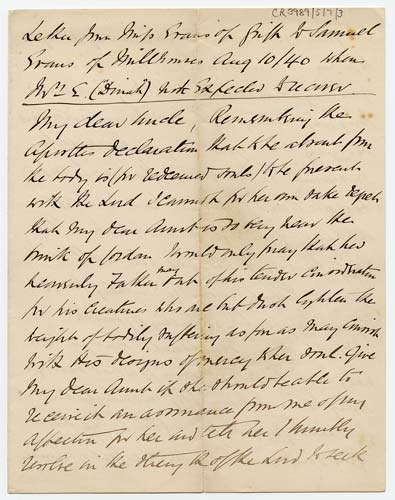 CR3989/5/7/3
Letter from Miss Evans of Griff to Samuel
Evans of Millhouses Aug 10/40 when
Mrs E ("Dinah") not Expected to recover
My dear Uncle, Remembering the
Apostles declaration that to be absent from
the body is (for redeemed souls) to be present
with the Lord I cannot for her own sake regret
that my dear Aunt is so very near the
brink of Jordan I would only pray that her
heavenly Father may out of his tender Consideration
for his creatures who are but dust lighten the
weight of bodily suffering as far as may consist
with His designs of mercy to her soul. Give
My dear Aunt if she should be able to
receive it an assurance from me of my
affection for her and tell her I humbly
resolve in the strength of the Lord to seek